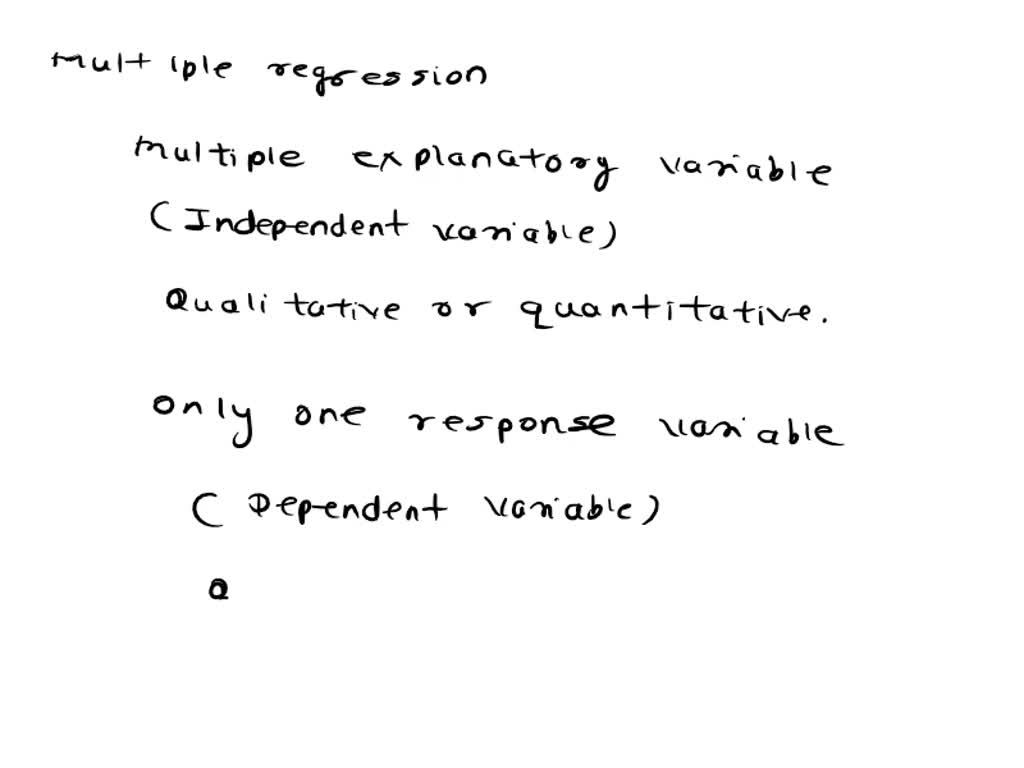 Multiple regression
Multiple explanatory variable
(Independent variable)
Qualitative or quantitative.
Only one response variable
(Dependent variable)
Q